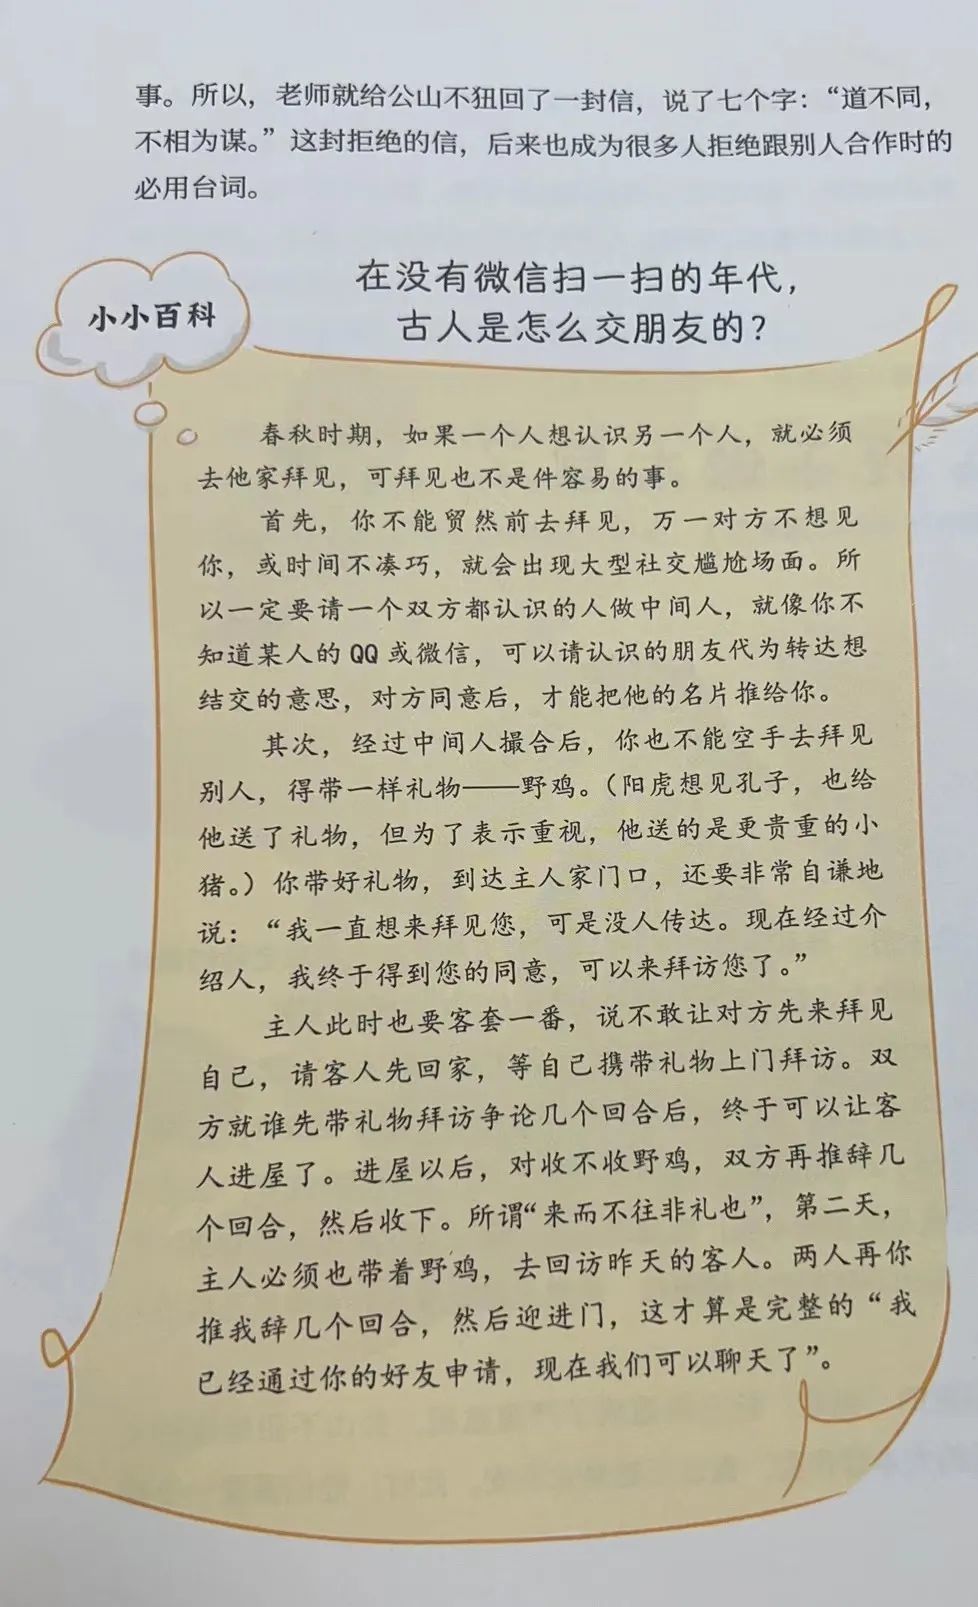 事。所以，老师就给公山不狃回了一封信，说了七个字：“道不同，
不相为谋。”这封拒绝的信，后来也成为很多人拒绝跟别人合作时的
必用台词。
小小百科
在没有微信扫一扫的年代，
古人是怎么交朋友的？
春秋时期，如果一个人想认识另一个人，就必须
去他家拜见，可拜见也不是件容易的事。
首先，你不能贸然前去拜见，万一对方不想见
你，或时间不凑巧，就会出现大型社交尴尬场面。所
以一定要请一个双方都认识的人做中间人，就像你不
知道某人的QQ或微信，可以请认识的朋友代为转达想
结交的意思，对方同意后，才能把他的名片推给你。
其次，经过中间人撮合后，你也不能空手去拜见
别人，得带一样礼物——野鸡。（阳虎想见孔子，也给
他送了礼物，但为了表示重视，他送的是更贵重的小
猪。）你带好礼物，到达主人家门口，还要非常自谦地
说：“我一直想来拜见您，可是没人传达。现在经过介
绍人，我终于得到您的同意，可以来拜访您了。”
主人此时也要客套一番，说不敢让对方先来拜见
自己，请客人先回家，等自己携带礼物上门拜访。双
方就谁先带礼物拜访争论几个回合后，终于可以让客
人进屋了。进屋以后，对收不收野鸡，双方再推辞几
个回合，然后收下。所谓“来而不往非礼也”，第二天，
主人必须也带着野鸡，去回访昨天的客人。两人再你
推我辞几个回合，然后迎进门，这才算是完整的“我
已经通过你的好友申请，现在我们可以聊天了”。